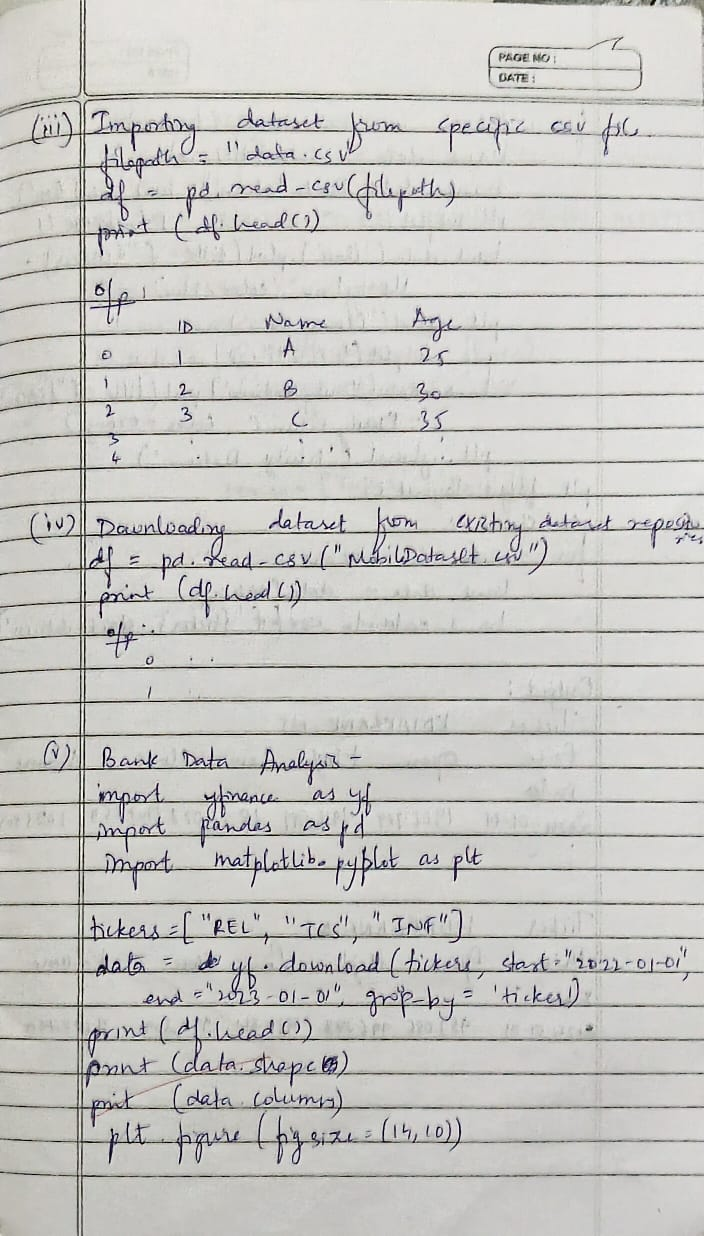 PAGE NO:
DATE:
(iii) Importing dataset from specific csv file
filepath = "data.csv"
df = pd.read-csv(filepath)
print (df.head())
o/p:
ID Name Age
0 1 A 25
1 2 B 30
2 3 C 35
3
4 . . .
(iv) Downloading dataset from existing dataset repositories
df = pd.read-csv("MobilDataset.csv")
print (df.head())
o/p:
0 . .
1
(v) Bank Data Analysis -
import yfinance as yf
import pandas as pd
import matplotlib.pyplot as plt
tickers = ["REL", "TCS", "INF"]
data = yf.download (tickers, start="2022-01-01",
end="2023-01-01", grop-by = 'ticker')
print (df.head())
print (data.shape)
print (data.columns)
plt.figure (figsize = (14,10))